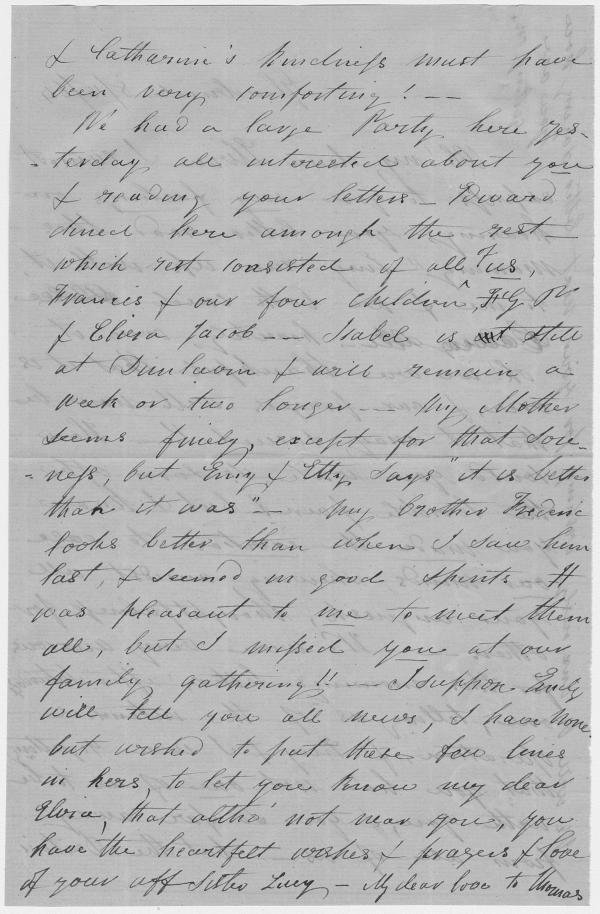 & Catharine's kindness must have
been very comforting! —
We had a large Party here yes-
-terday all interested about you
& reading your letters — Edward
dined here amongh the rest —
which rest consisted of all of us,
Francis & our four children,
& Elvira Jacob —— Isabel is still
at Dunlavin & will remain a
week or two longer —— My Mother
seems finely, except for that sore-
-ness, but Emy & Etty says "it is better
than it was" — My brother Frederic
looks better than when I saw him
last, & seemed in good spirits It
was pleasant to me to meet them
all, but I missed you at our
family gathering!! — I suppose Emily
will tell you all news, I have none
but wished to put these few lines
in hers, to let you know my dear
Elvira, that altho' not near you, you
have the heartfelt wishes & prayers & love
of your aff Sister Lucy — My dear love to Thomas